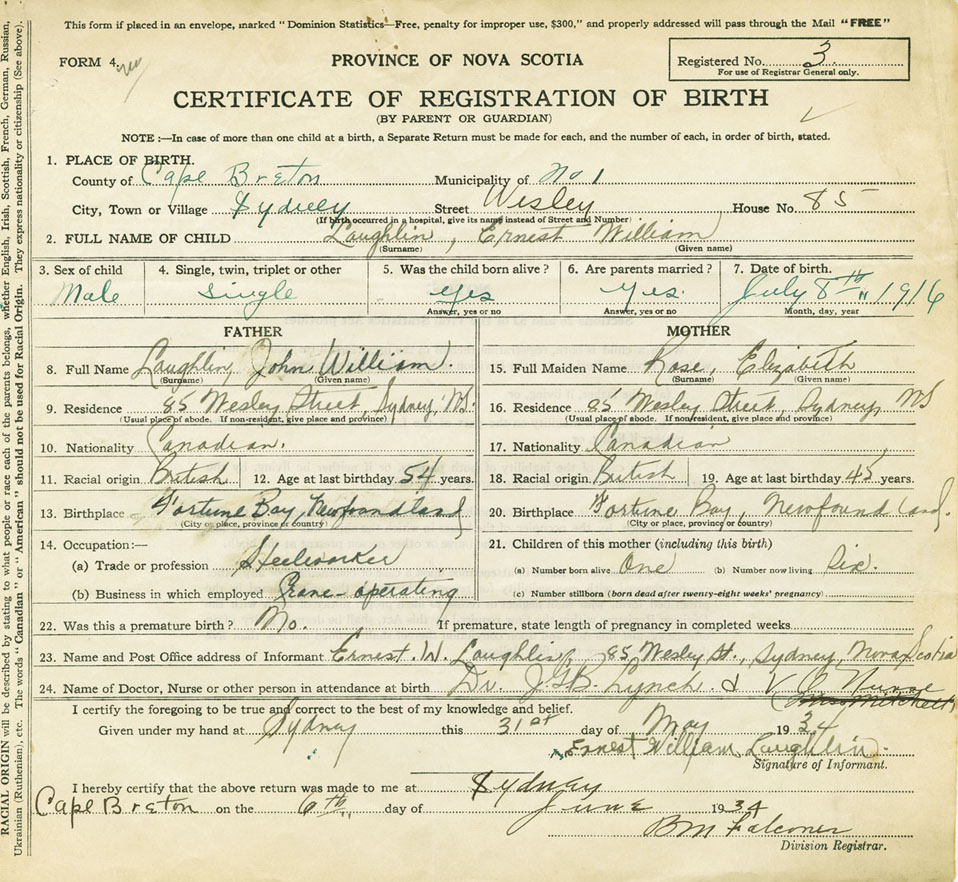 This form if placed in an envelope, marked "Dominion Statistics—Free, penalty for improper use, $300," and properly addressed will pass through the Mail "FREE"
FORM 4.
PROVINCE OF NOVA SCOTIA
Registered No. 3
For use of Registrar General only.
CERTIFICATE OF REGISTRATION OF BIRTH
(BY PARENT OR GUARDIAN)
NOTE :—In case of more than one child at a birth, a Separate Return must be made for each, and the number of each, in order of birth, stated.
1. PLACE OF BIRTH.
County of Cape Breton Municipality of No 1
City, Town or Village Sydney Street Wesley House No. 85
(If birth occurred in a hospital, give its name instead of Street and Number)
2. FULL NAME OF CHILD Laughlin, Ernest William
(Surname) (Given name)
3. Sex of child 4. Single, twin, triplet or other 5. Was the child born alive? 6. Are parents married? 7. Date of birth.
Male Single Yes Yes. July 8th " 1916
Answer, yes or no Answer, yes or no Month, day, year
FATHER
8. Full Name Laughlin, John William.
(Surname) (Given name)
9. Residence 85 Wesley Street, Sydney, N.S.
(Usual place of abode. If non-resident, give place and province)
10. Nationality Canadian.
11. Racial origin British 12. Age at last birthday 54 years.
13. Birthplace Fortune Bay, Newfoundland
(City or place, province or country)
14. Occupation:—
(a) Trade or profession Steelworker
(b) Business in which employed Crane-operating
MOTHER
15. Full Maiden Name Rose, Elizabeth
(Surname) (Given name)
16. Residence 85 Wesley Street, Sydney, NS
(Usual place of abode. If non-resident, give place and province)
17. Nationality Canadian
18. Racial origin British 19. Age at last birthday 45 years.
20. Birthplace Fortune Bay, Newfoundland.
(City or place, province or country)
21. Children of this mother (including this birth)
(a) Number born alive One (b) Number now living Six.
(c) Number stillborn (born dead after twenty-eight weeks' pregnancy)
22. Was this a premature birth? No. If premature, state length of pregnancy in completed weeks
23. Name and Post Office address of Informant Ernest. W. Laughlin, 85 Wesley St., Sydney, Nova Scotia
24. Name of Doctor, Nurse or other person in attendance at birth Dr. J.G.B. Lynch &
I certify the foregoing to be true and correct to the best of my knowledge and belief.
Given under my hand at Sydney this 31st day of May 1934
Ernest William Laughlin.
Signature of Informant.
I hereby certify that the above return was made to me at Sydney
Cape Breton on the 6th day of June 1934
BM Falconer
Division Registrar.
RACIAL ORIGIN will be described by stating to what people or race each of the parents belongs, whether English, Irish, Scottish, French, German, Russian,
Ukrainian (Ruthenian), etc. The words "Canadian" or "American" should not be used for Racial Origin. They express nationality or citizenship (See above).